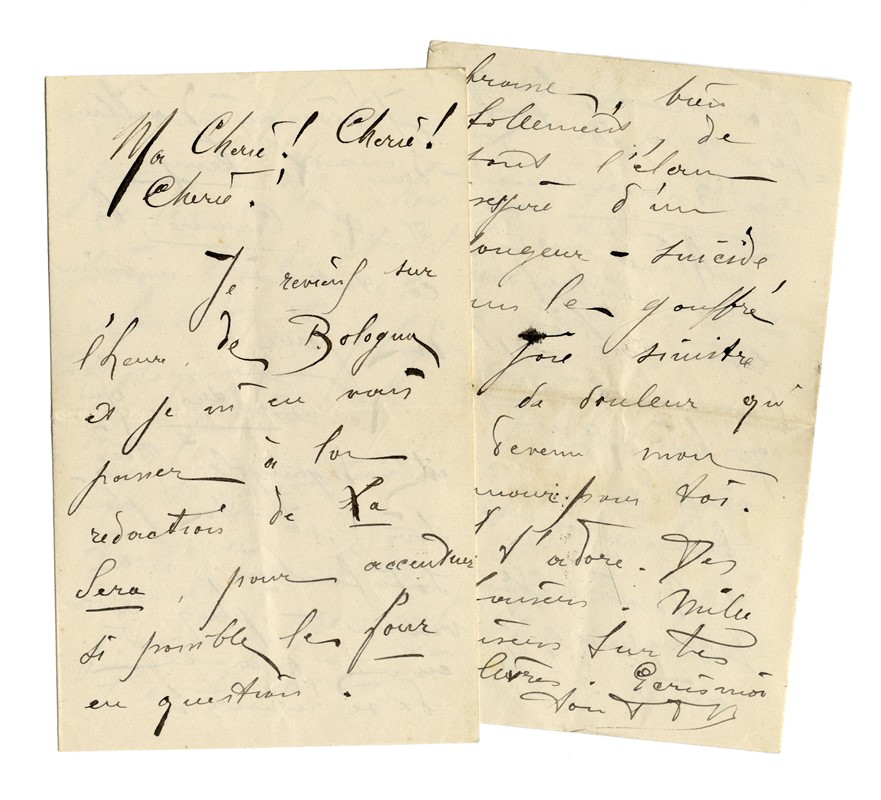 Ma Cherie! Cherie!
Cherie!
Je reviens sur
l'heure de Bologna
et je m'en vais
passer à la
redaction de La
Sera, pour accentuer
si possible le pour
en question.
bien
follement, de
tout l'élan
d'un
plongeur - suicidé
le gouffre
joie sinistre
de douleur qui
devenu mon
amour pour toi.
t'adore. Des
baisers. Mille
baisers sur tes
lèvres. Ecris moi
ton F T M